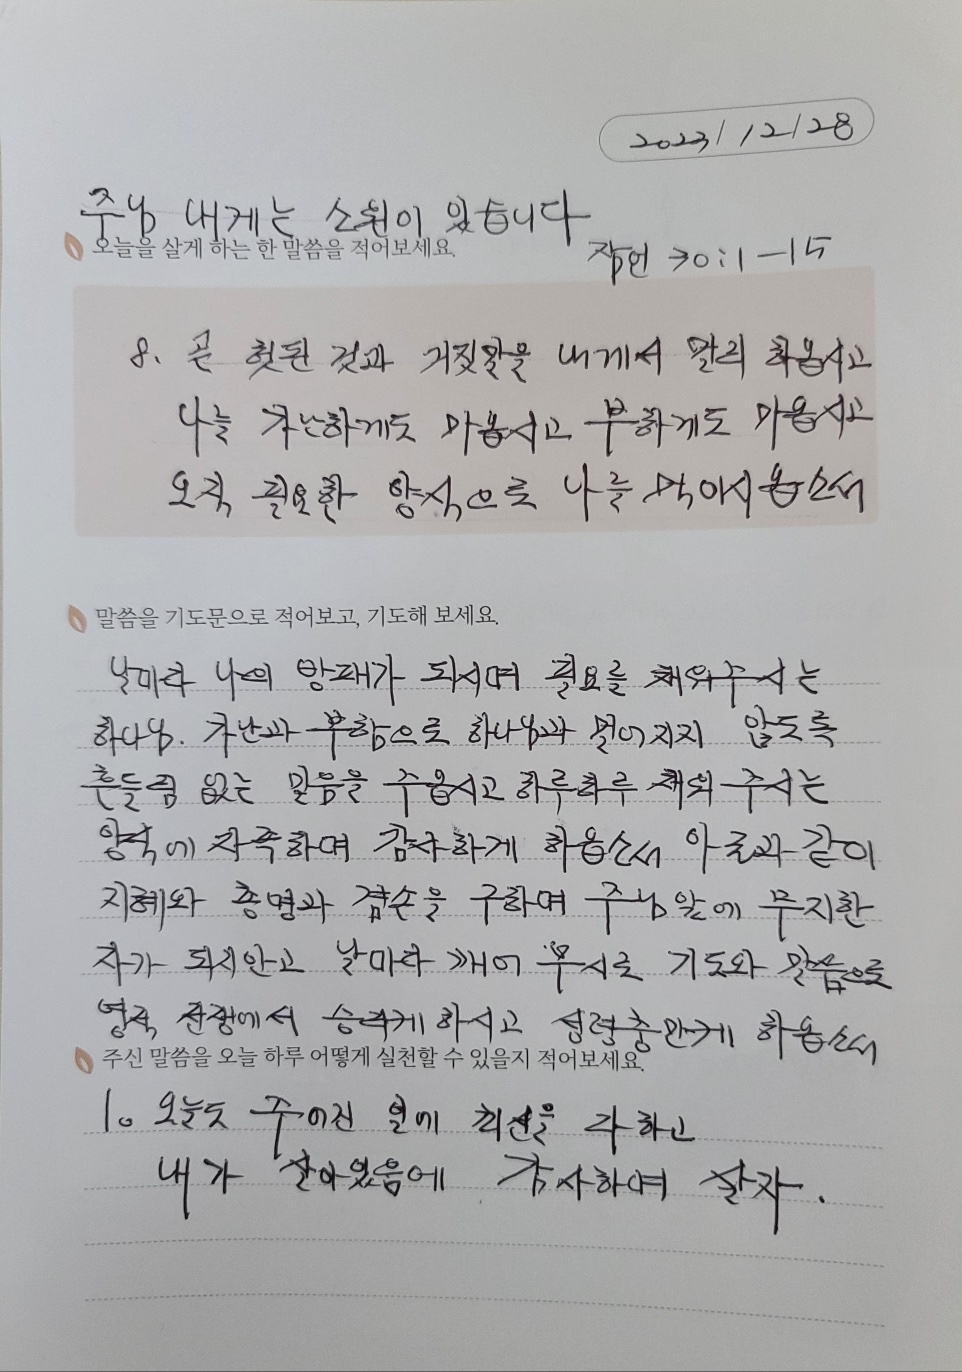 2023/12/28
주님 내게는 소원이 있습니다
오늘을 살게 하는 한 말씀을 적어보세요.
잠언 30:1-15
8. 곧 헛된 것과 거짓말을 내게서 멀리 하옵시고
나를 가난하게도 마옵시고 부하게도 마옵시고
오직 필요한 양식으로 나를 먹이시옵소서
말씀을 기도문으로 적어보고, 기도해 보세요.
날마다 나의 방패가 되시며 필요를 채워주시는
하나님. 가난과 부함으로 하나님과 멀어지지 않도록
흔들림 없는 믿음을 주옵시고 하루하루 채워 주시는
양식에 자족하며 감사하게 하옵소서 아굴과 같이
지혜와 총명과 겸손을 구하며 주님 앞에 무지한
자가 되지안고 날마다 깨어 무시로 기도와 말씀으로
영적 전쟁에서 승리케 하시고 성령충만케 하옵소서
주신 말씀을 오늘 하루 어떻게 실천할 수 있을지 적어보세요.
1. 오늘도 주어진 일에 최선을 다하고
내가 살아있음에 감사하며 살자.